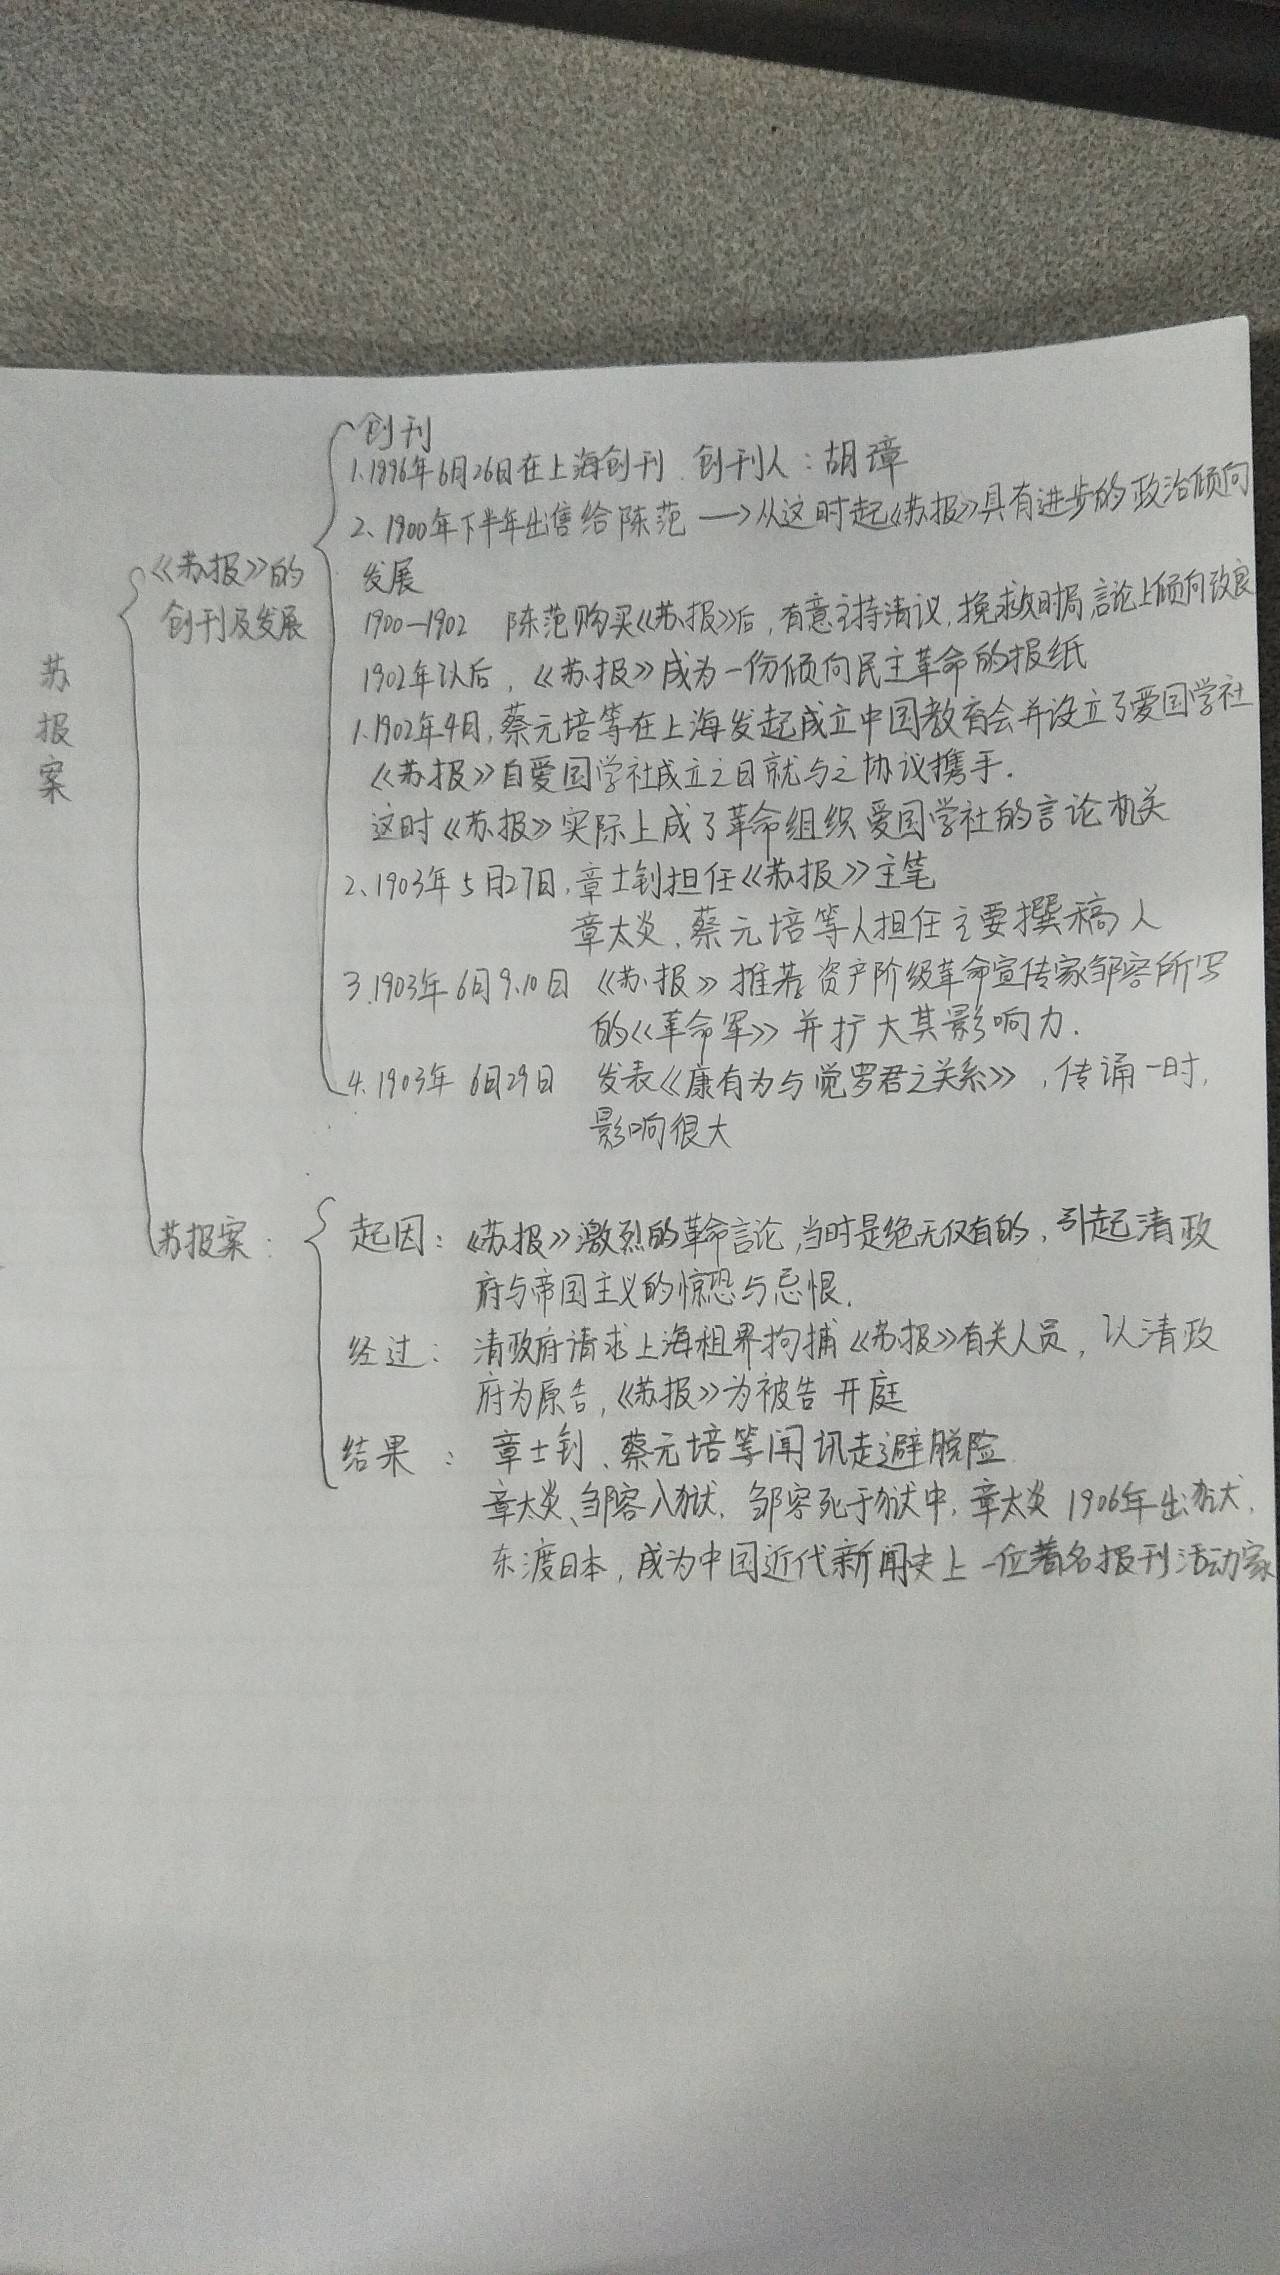 苏报案
《苏报》的
创刊及发展
创刊
1.1896年6月26日在上海创刊 创刊人：胡璋
2、1900年下半年出售给陈范 →从这时起《苏报》具有进步的政治倾向
发展
1900-1902 陈范购买《苏报》后，有意主持清议，挽救时局 言论上倾向改良
1902年以后，《苏报》成为一份倾向民主革命的报纸
1.1902年4月，蔡元培等在上海发起成立中国教育会并设立了爱国学社
《苏报》自爱国学社成立之日就与之协议携手.
这时《苏报》实际上成了革命组织爱国学社的言论机关
2、1903年5月27日，章士钊担任《苏报》主笔
章太炎、蔡元培等人担任主要撰稿人
3.1903年6月9.10日 《苏报》推荐资产阶级革命宣传家邹容所写
的《革命军》并扩大其影响力.
4.1903年6月29日 发表《康有为与觉罗君之关系》，传诵一时，
影响很大
苏报案：
起因：《苏报》激烈的革命言论，当时是绝无仅有的，引起清政
府与帝国主义的惊恐与忌恨.
经过：清政府请求上海租界拘捕《苏报》有关人员，以清政
府为原告，《苏报》为被告开庭
结果：章士钊、蔡元培等闻讯走避脱险
章太炎、邹容入狱，邹容死于狱中，章太炎1906年出狱，
东渡日本，成为中国近代新闻史上一位著名报刊活动家